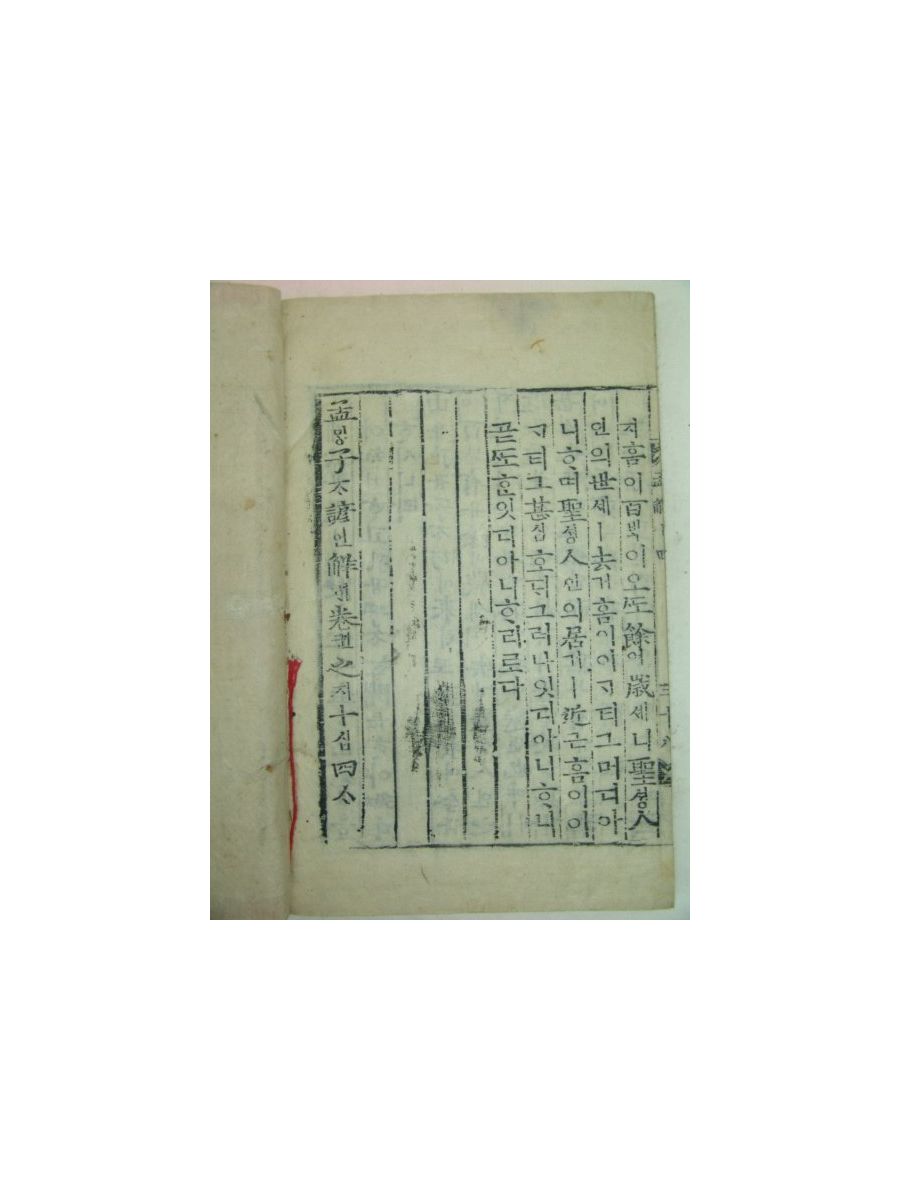 지홈이百ᄇᆡᆨ이오ᄯᅩ餘여歲셰니聖셩人
인의世셰ㅣ去거홈이이ᄀᆞ티그머디아
니ᄒᆞ며聖셩人인의居거ㅣ近근홈이이
ᄀᆞ티그甚심호ᄃᆡ그러나잇디아니ᄒᆞ니
곧ᄯᅩᄒᆞᆫ잇디아니ᄒᆞ리로다
孟ᄆᆡᆼ子ᄌᆞ諺언解ᄒᆡ卷권之지十십四ᄉᆞ